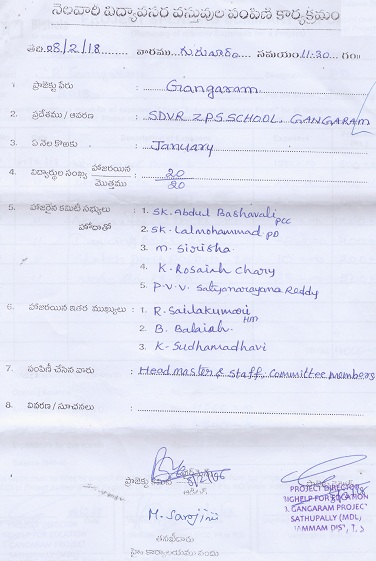 నెలవారి విద్యావసర వస్తువుల పంపిణీ కార్యక్రమం
తేది:08/2/18 వారము గురువారం సమయం 11:30 గం॥
1. ప్రాజెక్టు పేరు : Gangaram
2. ప్రదేశము / ఆవరణ : SDVR ZPSSCHOOL, GANGARAM
3. ఏ నెల కొఱకు : January
4. విద్యార్థుల సంఖ్య హాజరయిన 20
మొత్తము 20
5. హాజరైన కమిటి సభ్యులు : 1. SK. Abdul Bashavali PCC
హోదాతో 2. SK. Lalmohammad PD
3. M. Sirisha
4. K. Rosaiah Chary
5. P.V.V. Satyanarayana Reddy
6. హాజరయిన ఇతర ముఖ్యులు : 1. R. Sailakumari HM
2. B. Balaiah
3. K. Sudhamadhavi
7. పంపిణీ చేసిన వారు : Head master & staff, Committee members
8. వివరణ / సూచనలు :
ప్రాజెక్టు
M. Sarojini
PROJECT DIRECTOR
HIGHELP FOR EDUCATION
GANGARAM PROJECT
SATHUPALLY (MDL)
KHAMMAM DIST, T.S